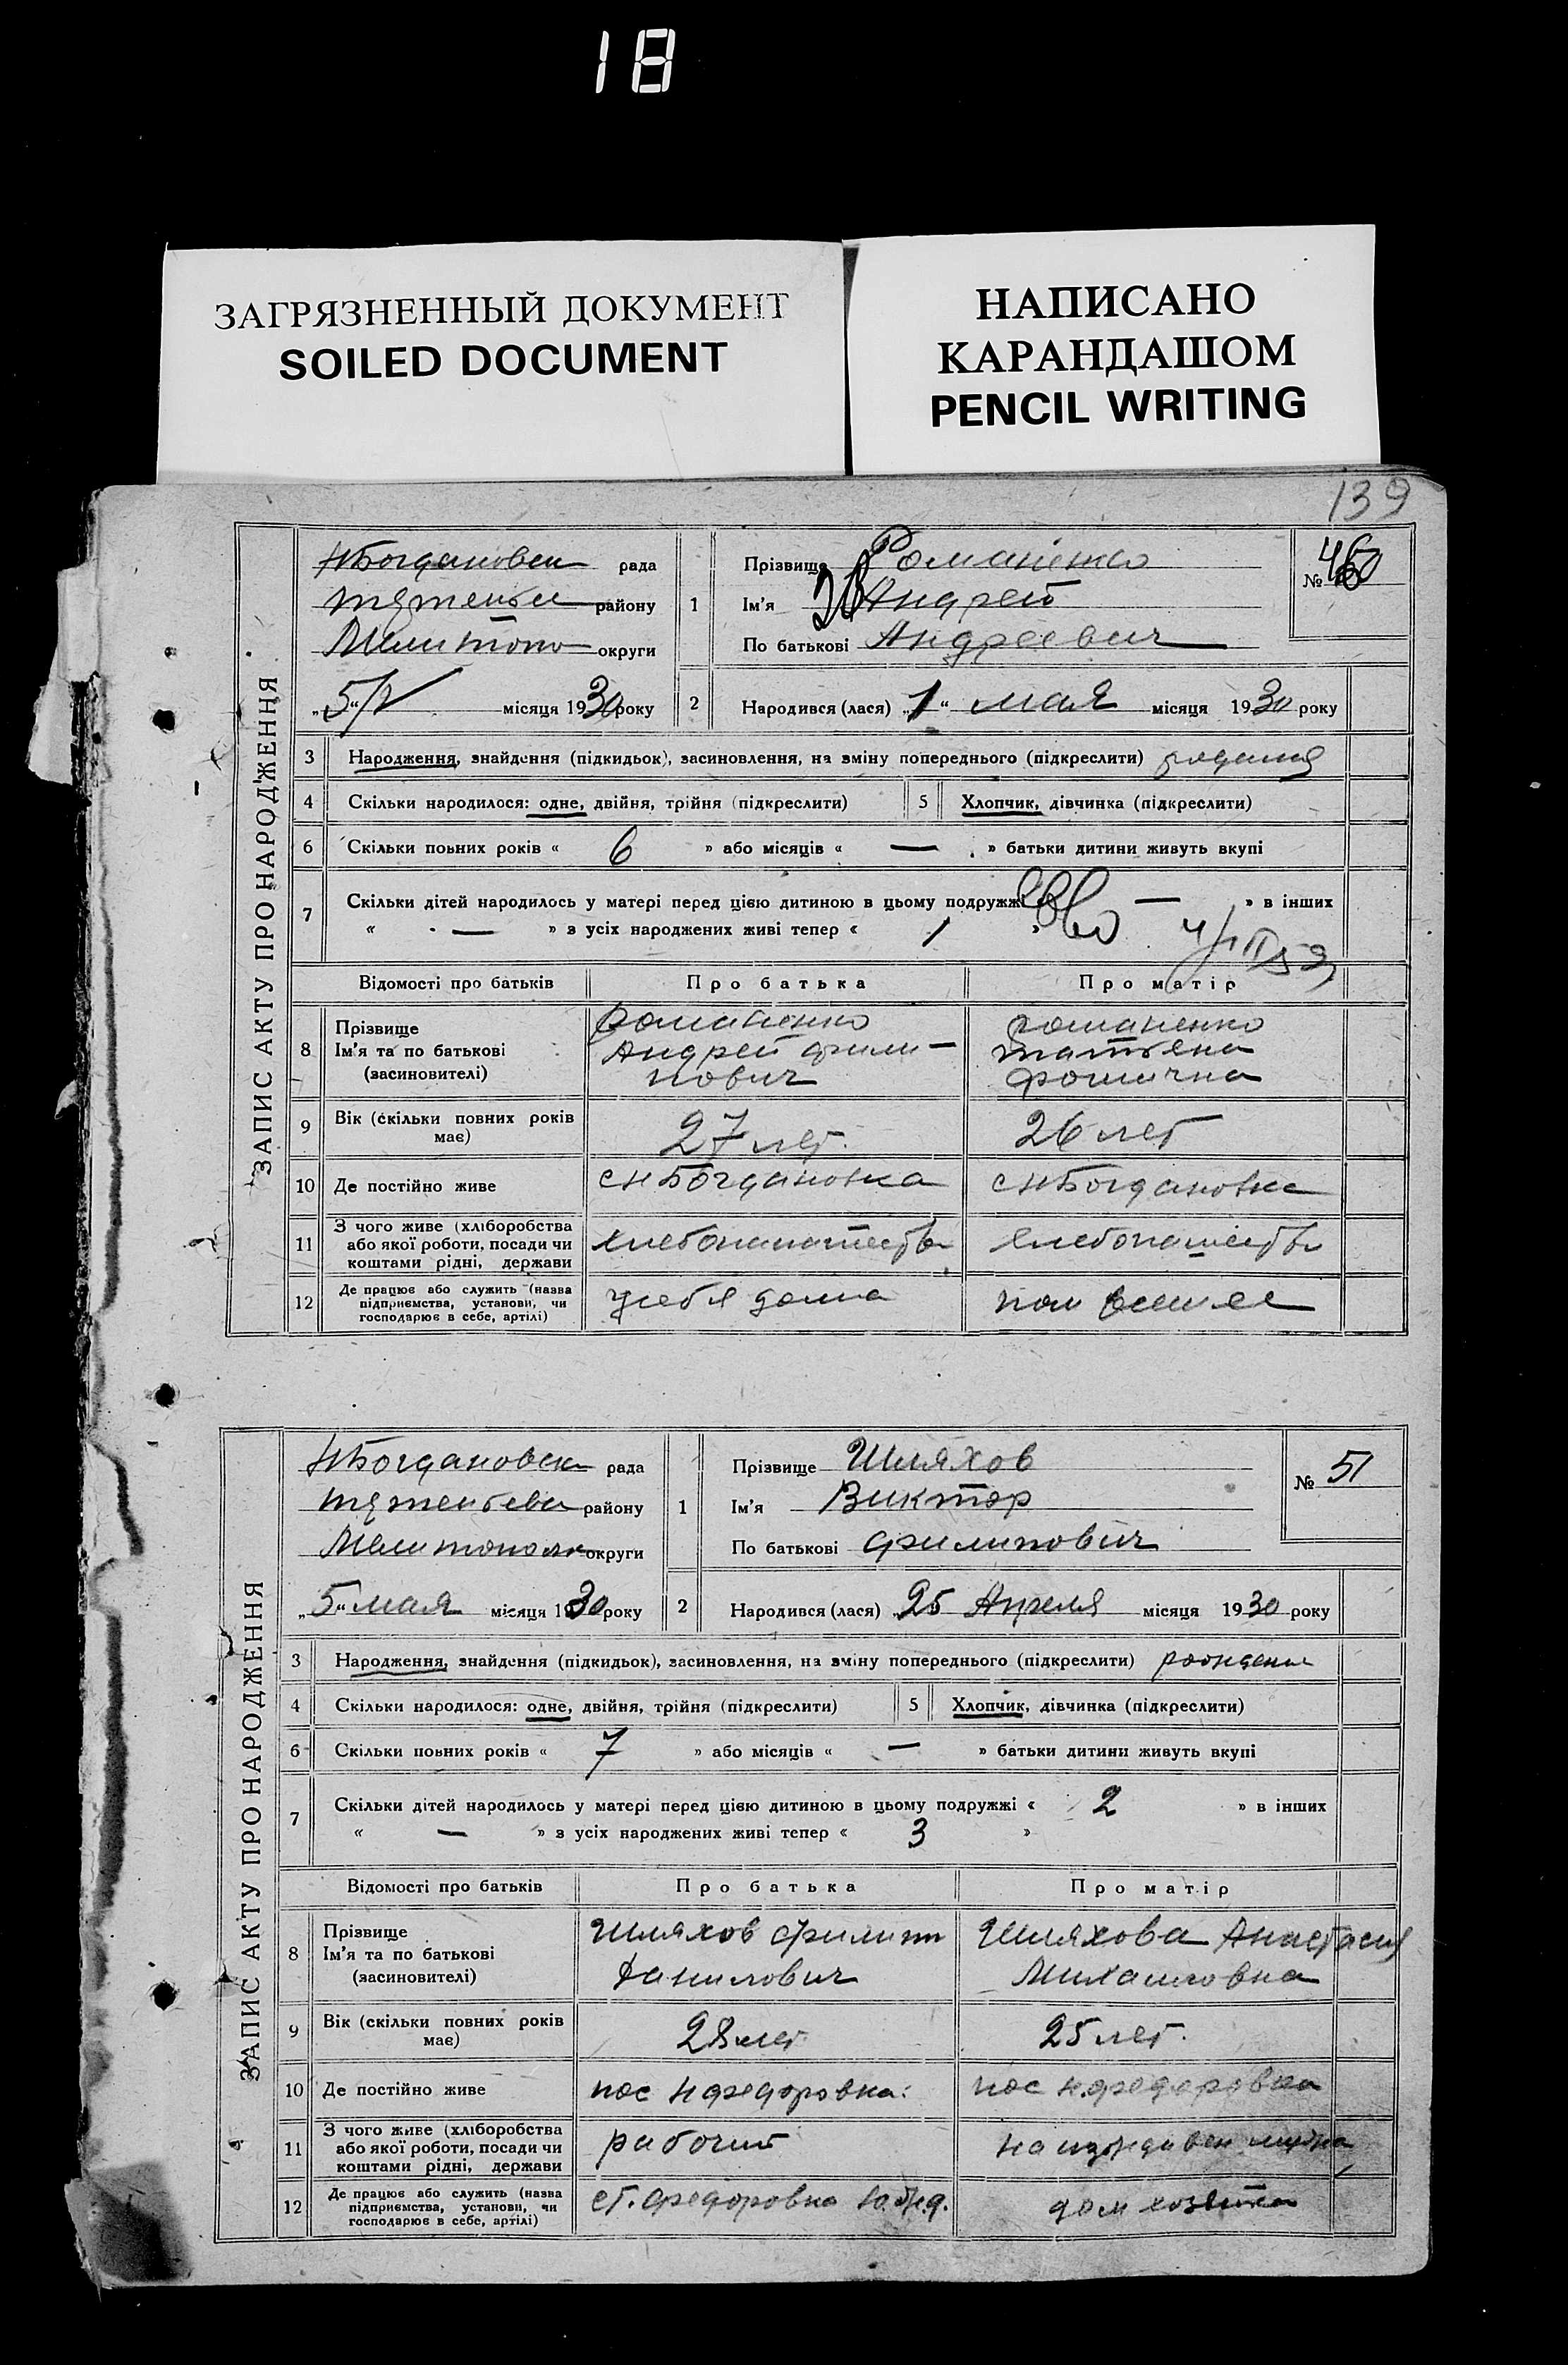 18
ЗАГРЯЗНЕННЫЙ ДОКУМЕНТ
SOILED DOCUMENT
НАПИСАНО
КАРАНДАШОМ
PENCIL WRITING
139
ЗАПИС АКТУ ПРО НАРОДЖЕННЯ
НБогдановск рада
району
Мелитопо округи
„5“ місяця 1930 року
1 Прізвище Романенко
Ім'я Андрей
По батькові Андреевич
№
2 Народився (лася) „1“ мая місяця 1930 року
3 Народження, знайдення (підкидьок), засиновлення, на зміну попереднього (підкреслити)
4 Скільки народилося: одне, двійня, трійня (підкреслити) 5 Хлопчик, дівчинка (підкреслити)
6 Скільки повних років « 6 » або місяців « — » батьки дитини живуть вкупі
7 Скільки дітей народилось у матері перед цією дитиною в цьому подружжі — » в інших
« — » з усіх народжених живі тепер « 1 »
Відомості про батьків Про батька Про матір
8 Прізвище
Ім'я та по батькові
(засиновителі)
Романенко
Андрей Фили-
пович
Романенко
Татьяна
Фомична
9 Вік (скільки повних років має) 27 лет. 26 лет
10 Де постійно живе с НБогдановка с НБогдановка
11 З чого живе (хліборобства
або якої роботи, посади чи
коштами рідні, держави
хлебопашество
12 Де працює або служить (назва
підприємства, установи, чи
господарює в себе, артілі)
у себя дома
ЗАПИС АКТУ ПРО НАРОДЖЕННЯ
НБогдановск рада
району
Мелитополь округи
„5“ мая місяця 1930 року
1 Прізвище Шляхов
Ім'я Виктор
По батькові Филипович
№ 51
2 Народився (лася) 25 Апреля місяця 1930 року
3 Народження, знайдення (підкидьок), засиновлення, на зміну попереднього (підкреслити)
4 Скільки народилося: одне, двійня, трійня (підкреслити) 5 Хлопчик, дівчинка (підкреслити)
6 Скільки повних років « 7 » або місяців « — » батьки дитини живуть вкупі
7 Скільки дітей народилось у матері перед цією дитиною в цьому подружжі « 2 » в інших
« — » з усіх народжених живі тепер « 3 »
Відомості про батьків Про батька Про матір
8 Прізвище
Ім'я та по батькові
(засиновителі)
Шляхов Филипп
Данилович
Шляхова Анастасия
Михайловна
9 Вік (скільки повних років має) 28 лет 25 лет.
10 Де постійно живе пос Нфедоровка. пос Н.федоровка
11 З чого живе (хліборобства
або якої роботи, посади чи
коштами рідні, держави
рабочий
на иждивен мужа
12 Де працює або служить (назва
підприємства, установи, чи
господарює в себе, артілі)
ст. Федоровка Ю.ж.д.
дом хозяйка